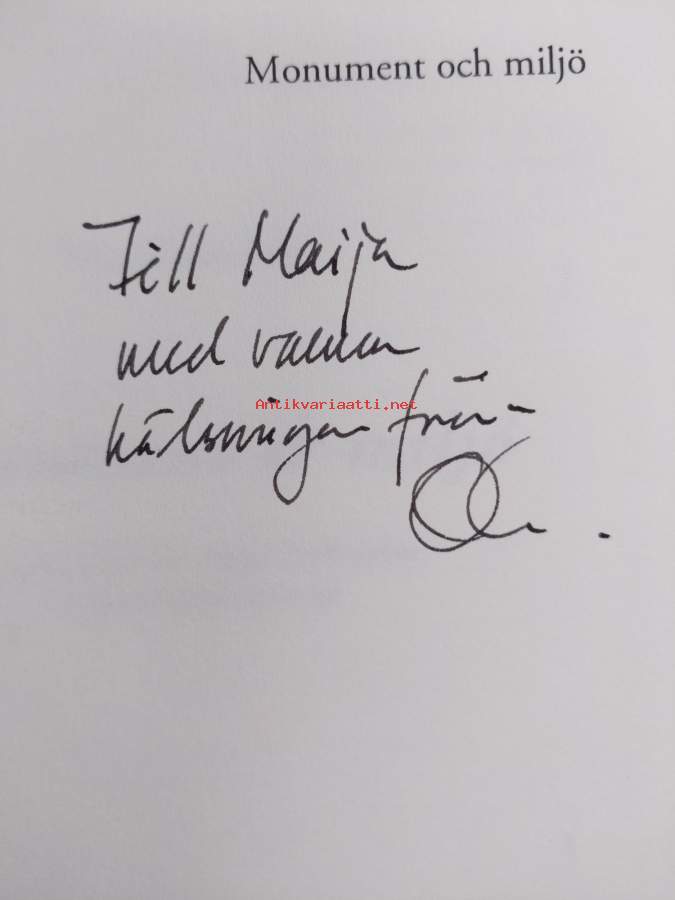 Monument och miljö
Till Maija
med varma
Antikvariaatti.net
hälsningar från